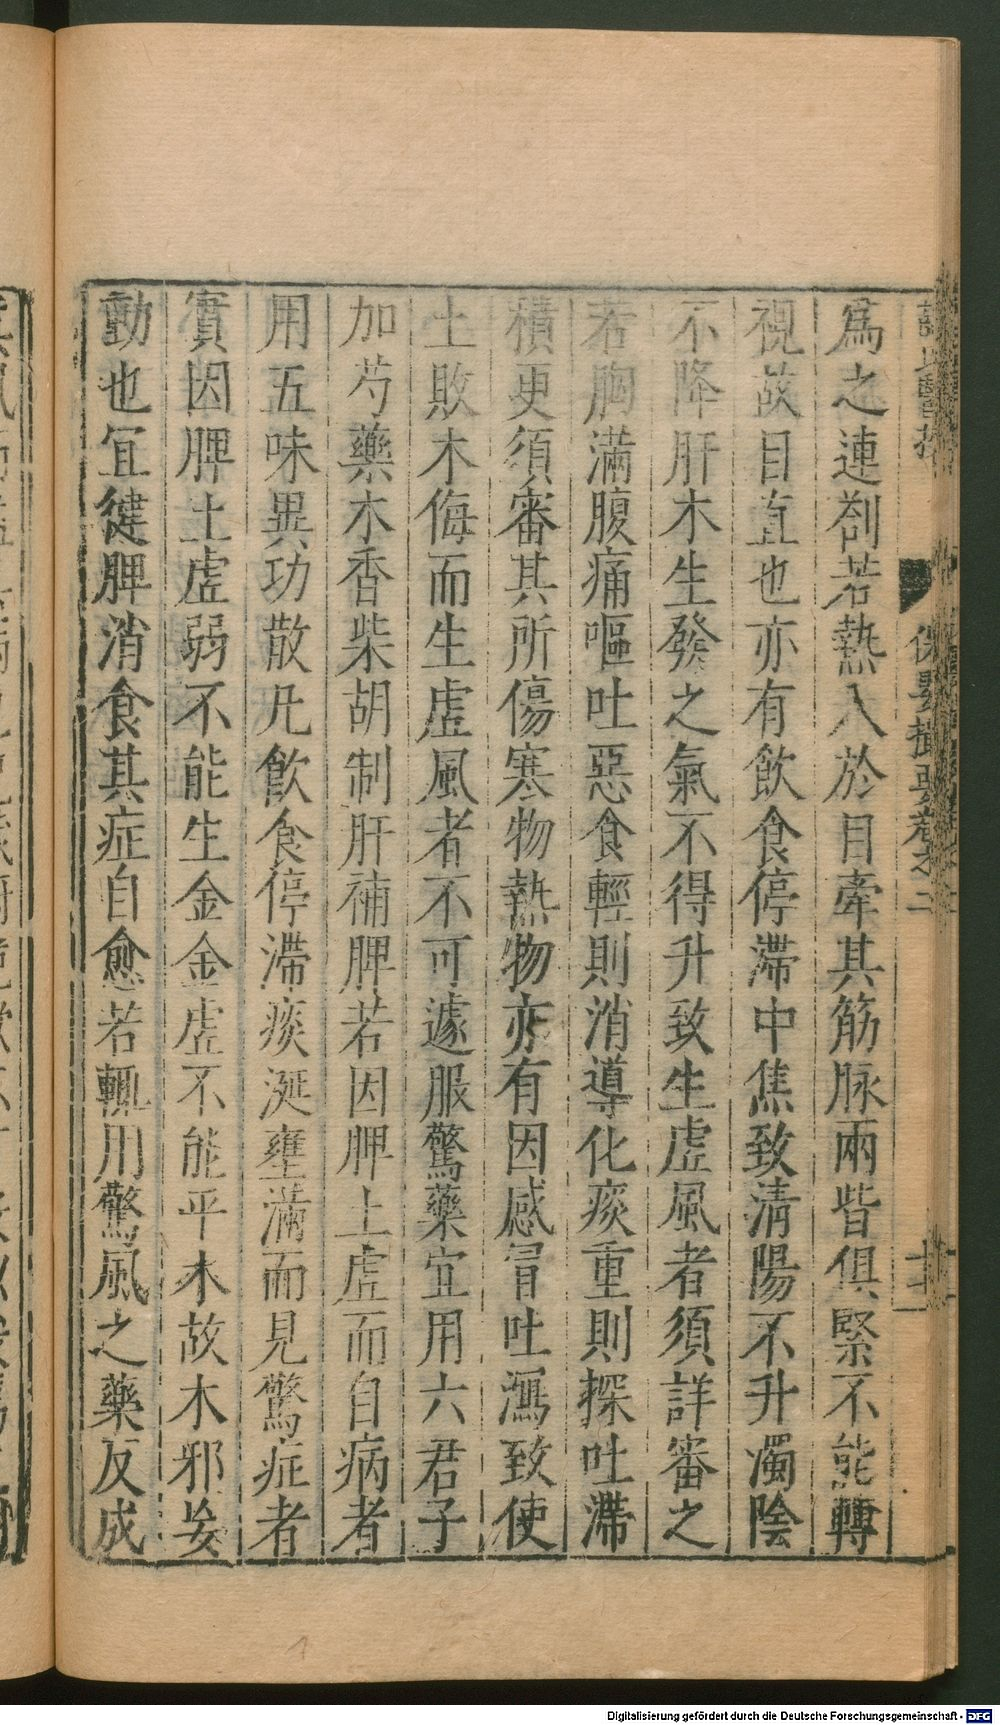 保嬰撮要卷之二
爲之連劄若熱入於目牽其筋脉兩眥俱緊不能轉
視故目直也亦有飲食停滯中焦致清陽不升濁陰
不降肝木生發之氣不得升致生虛風者須詳審之
若胸滿腹痛嘔吐惡食輕則消導化痰重則探吐滯
積更須審其所傷寒物熱物亦有因感冒吐瀉致使
土敗木侮而生虛風者不可遽服驚藥宜用六君子
加芍藥木香柴胡制肝補脾若因脾土虛而自病者
用五味異功散凡飲食停滯痰涎壅滿而見驚症者
實因脾土虛弱不能生金金虛不能平木故木邪妄
動也宜健脾消食其症自愈若輒用驚風之藥反成
Digitalisierung gefördert durch die Deutsche Forschungsgemeinschaft - DFG